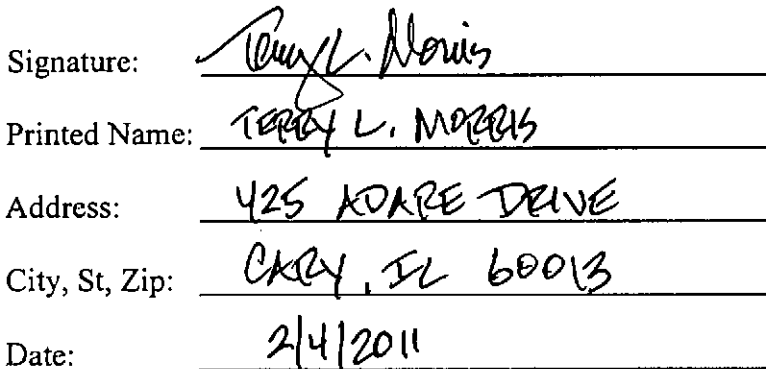 Signature: Terry L. Morris
Printed Name: TERRY L. MORRIS
Address: 425 ADARE DRIVE
City, St, Zip: CARY, IL 60013
Date: 2/4/2011